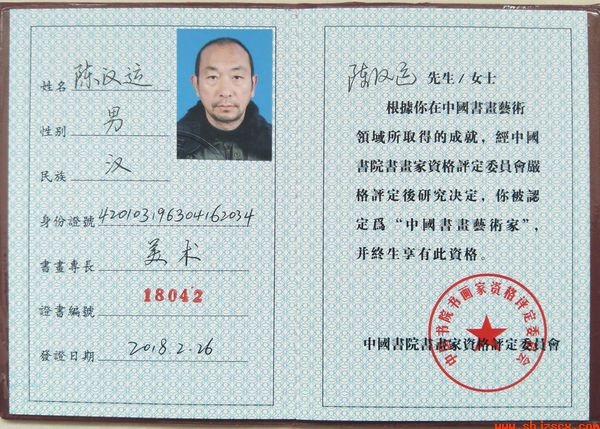 姓名 陈汉运
性别 男
民族 汉
身份證號 420103196304162034
書畫專長 美术
證書編號 18042
發證日期 2018.2.26
陈汉运 先生/女士
根據你在中國書畫藝術
領域所取得的成就，經中國
書院書畫家資格評定委員會嚴
格評定後研究决定，你被認
定爲“中國書畫藝術家”，
并終生享有此資格。
中國書院書畫家資格評定委員會
中国书院书画家资格评定委员会
www.shjzscx.com